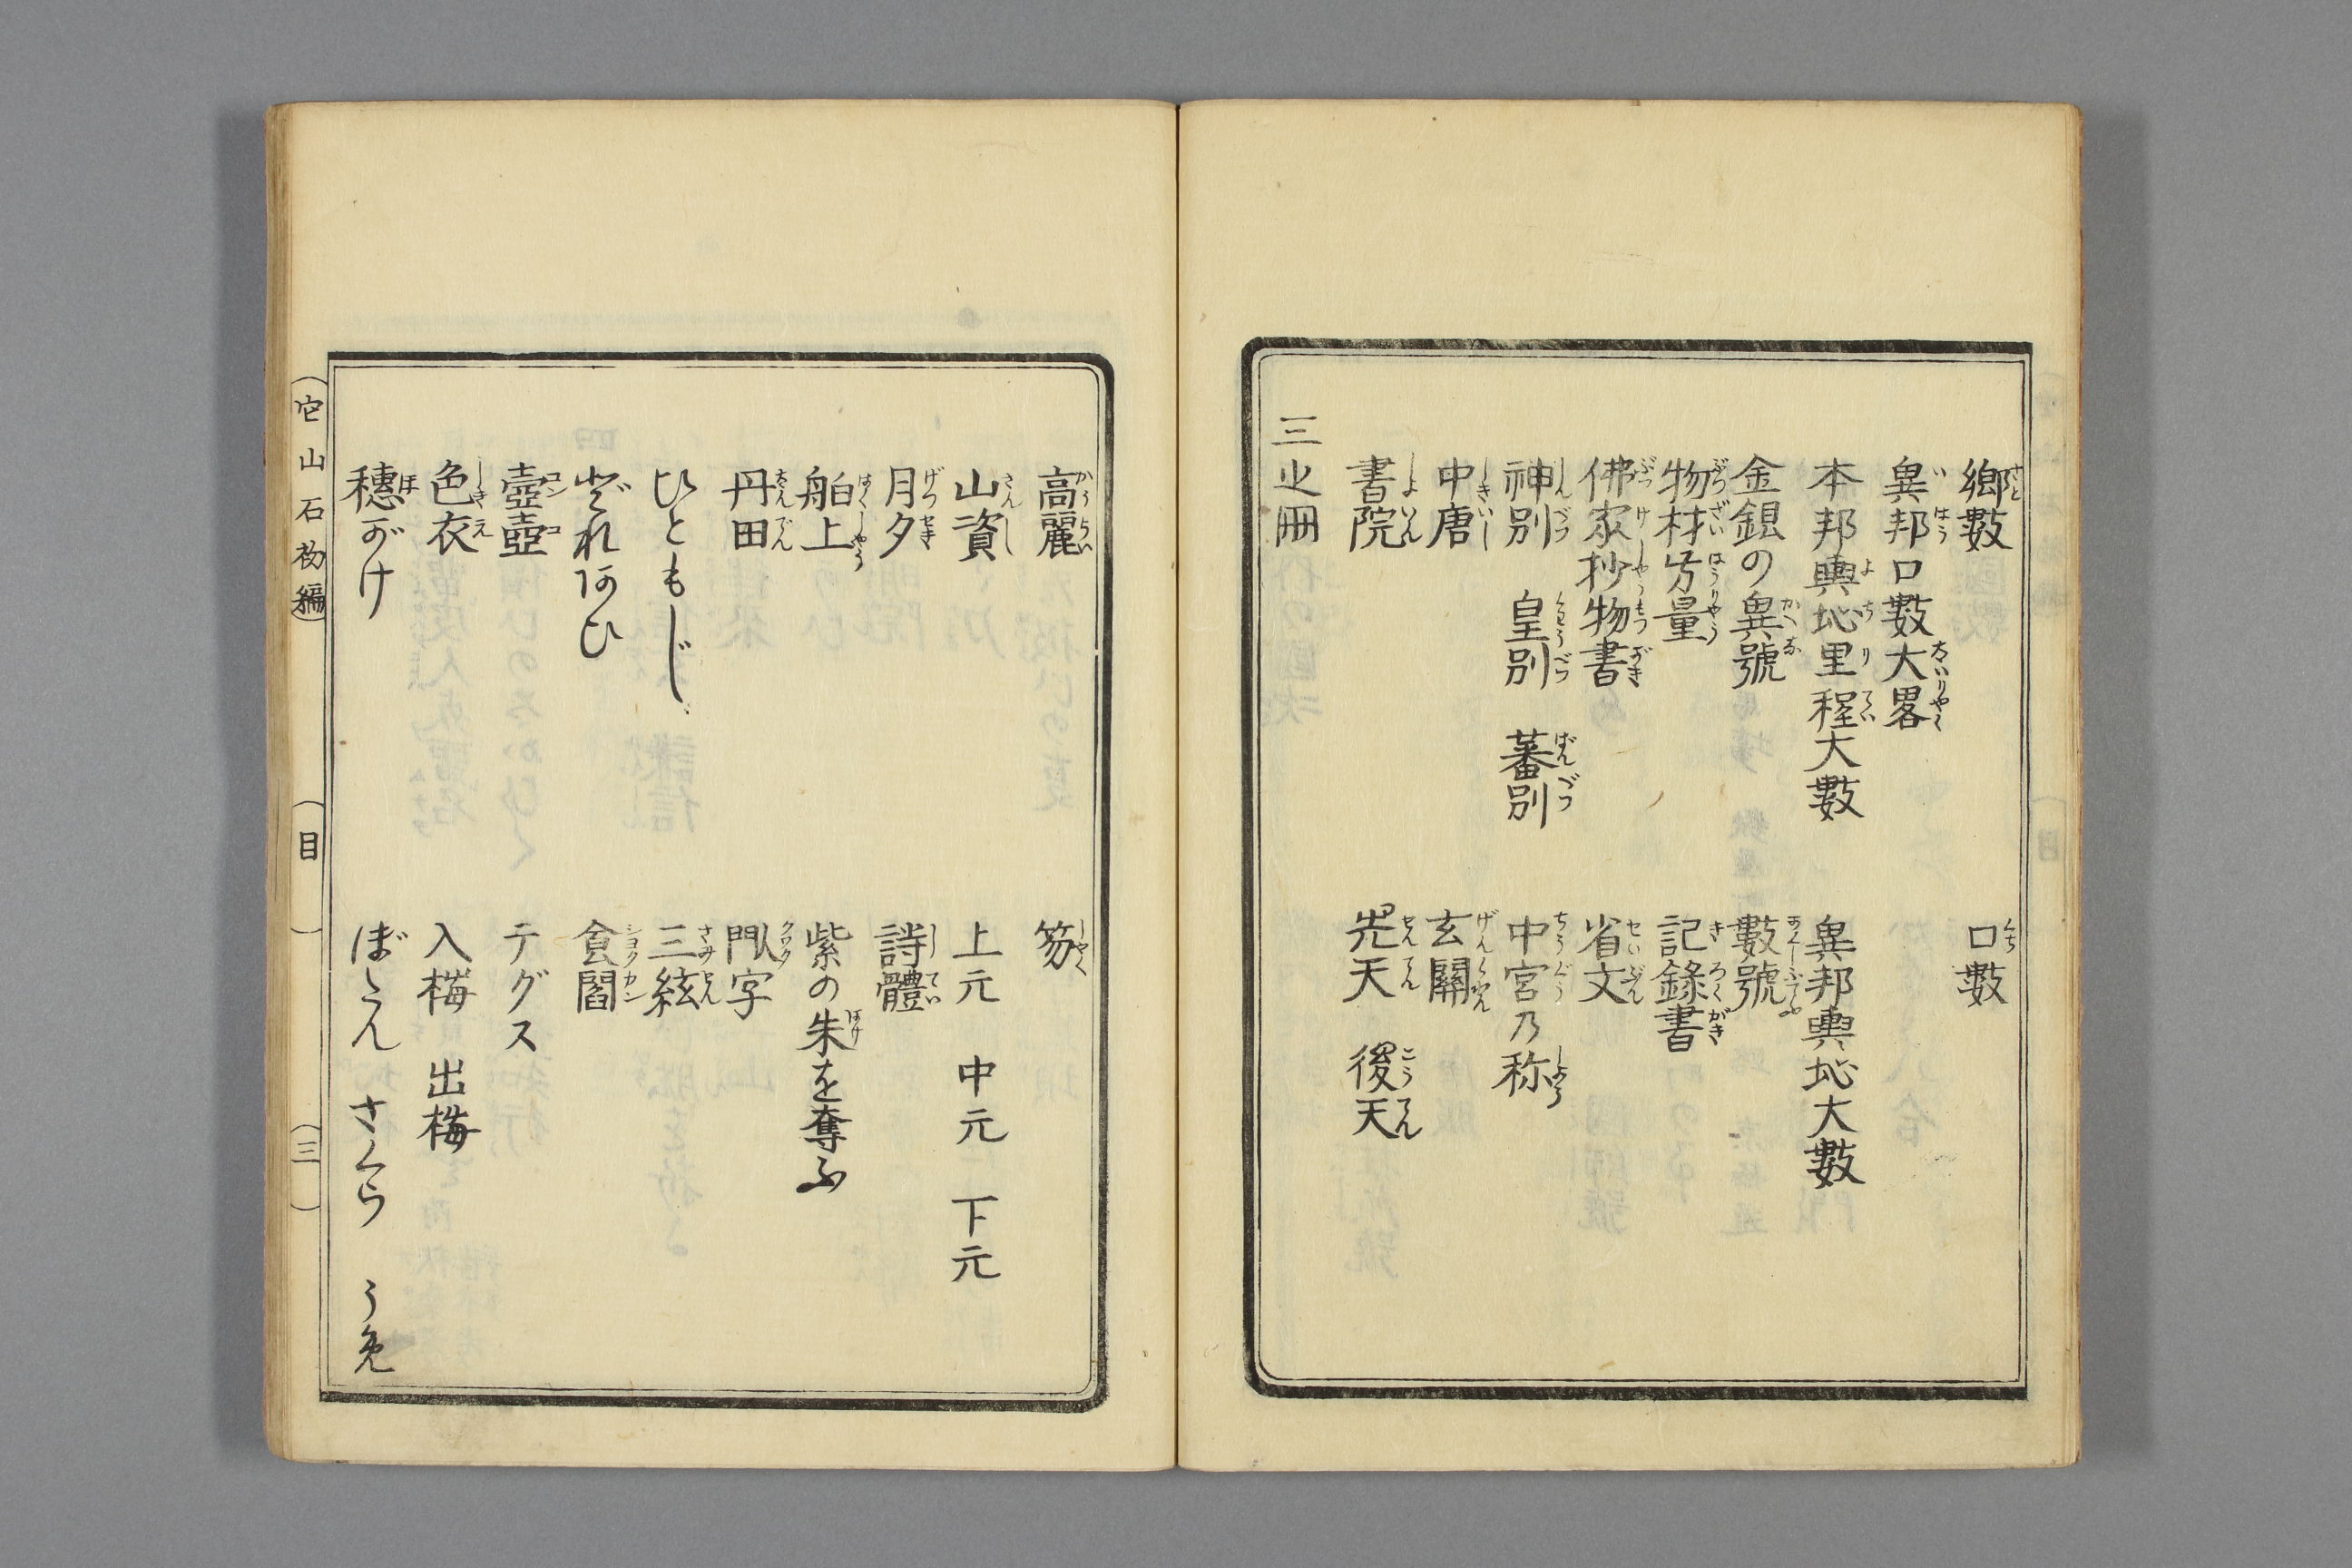 郷數　口數
異邦口數大畧
本邦輿地里程大數　異邦輿地大數
金銀の異號　數號
物材方量　記錄書
佛家抄物書　省文
神別　皇別　蕃別　中宮乃称
中唐　玄關
書院　先天　後天
三之冊
高麗　笏
山資　上元　中元　下元
月夕　詩體
舶上　紫の朱を奪ふ
丹田　闕字
ひともじ　三絃
ざれ　食閣
壺壺　テグス
色衣　入梅　出梅
穗がけ　さくら
它山石初編　目　三